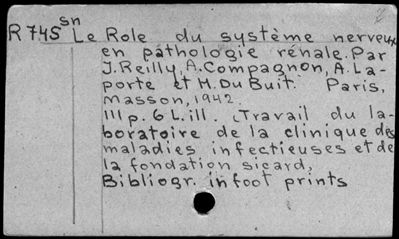 R 745 sn Le Role du système nerveux
en pathologie rénale. Par
J. Reilly, A. Compagnon, A. La-
porte et H. Du Buit. Paris,
Masson, 1942.
111 p. 6 L. ill. (Travail du la-
boratoire de la clinique des
maladies infectieuses et de
la fondation sicard.
Bibliogr. in foot prints